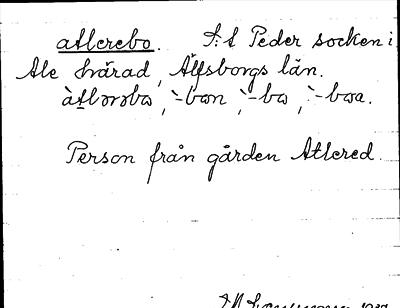 atlerebo. S:t Peder socken i
Ale härad, Älfsborgs län.
àtlərəbω, `-bωn, `-bω, `-bωa.
Person från gården Atlered.